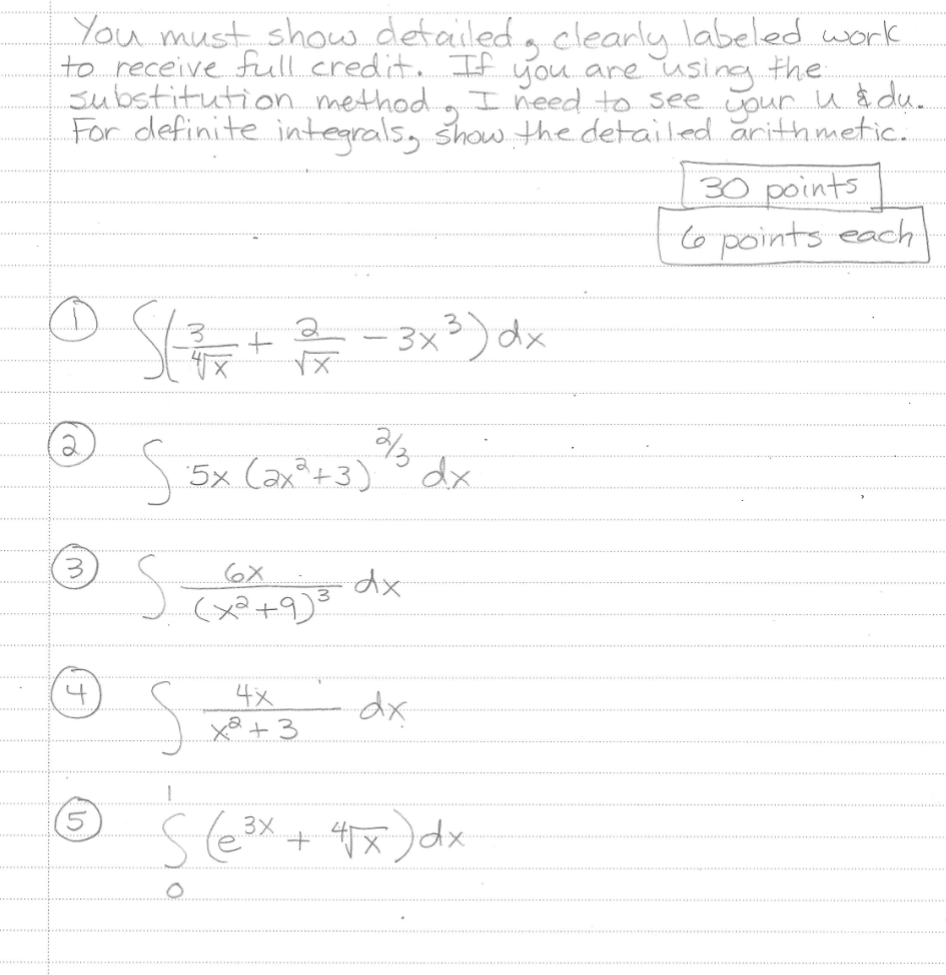 You must show detailed, clearly labeled work
to receive full credit. If you are using the
substitution method, I need to see your u & du.
For definite integrals, show the detailed arithmetic.
30 points
6 points each
① ∫(3/∜x + 2/√x − 3x³) dx
② ∫ 5x (2x²+3)^(2/3) dx
③ ∫ 6x/(x²+9)³ dx
④ ∫ 4x/(x²+3) dx
⑤ ∫₀¹ (e^(3x) + ∜x) dx